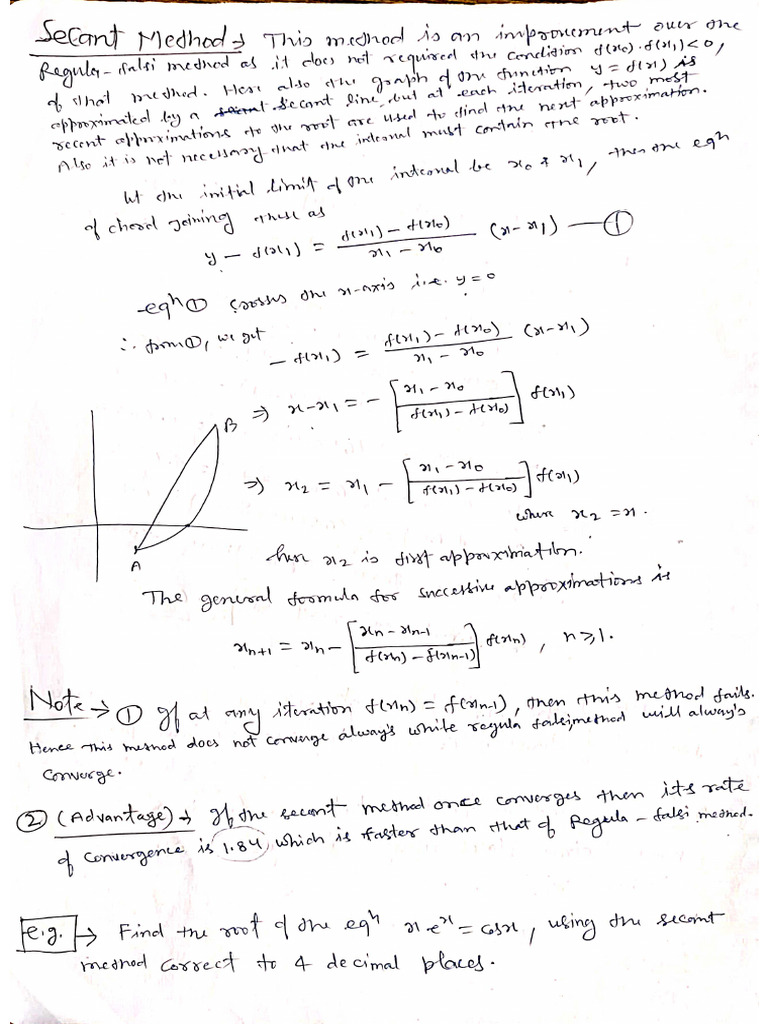 Secant Method → This method is an improvement over the
Regular-falsi method as it does not required the condition f(x0).f(x1)<0,
of that method. Here also the graph of the function y = f(x) is
approximated by a secant line, but at each iteration, two most
recent approximations to the root are used to find the next approximation.
Also it is not necessary that the interval must contain the root.
Let the initial limit of the interval be x0 & x1, then the eqn
of chord joining these as
y - f(x1) = (f(x1) - f(x0))/(x1 - x0) (x-x1) — ①
eqn ① crosses the x-axis i.e. y = 0
∴ from ①, we get
- f(x1) = (f(x1) - f(x0))/(x1 - x0) (x-x1)
⇒ x-x1 = - [(x1 - x0)/(f(x1) - f(x0))] f(x1)
B
⇒ x2 = x1 - [(x1 - x0)/(f(x1) - f(x0))] f(x1)
where x2 = x.
A
here x2 is first approximation.
The general formula for successive approximations is
xn+1 = xn - [(xn - xn-1)/(f(xn) - f(xn-1))] f(xn), n ≥ 1.
Note → ① If at any iteration f(xn) = f(xn-1), then this method fails.
Hence this method does not converge always while regula falsi method will always
converge.
② (Advantage) → If the secant method once converges then its rate
of convergence is 1.84, which is faster than that of Regula-falsi method.
e.g. → Find the root of the eqn x e^x = cosx, using the secant
method correct to 4 decimal places.